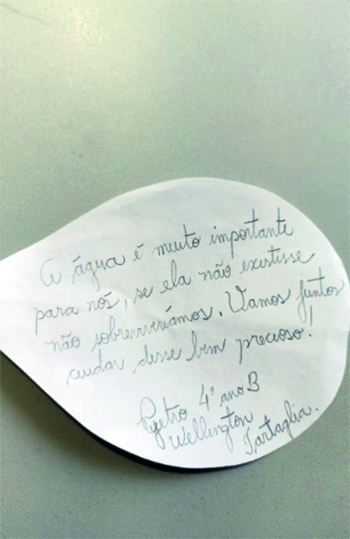 A água é muito importante
para nós, se ela não existisse
não sobreviveríamos. Vamos juntos
cuidar desse bem precioso!
Pyetro 4º ano B
Wellington
Tartaglia.